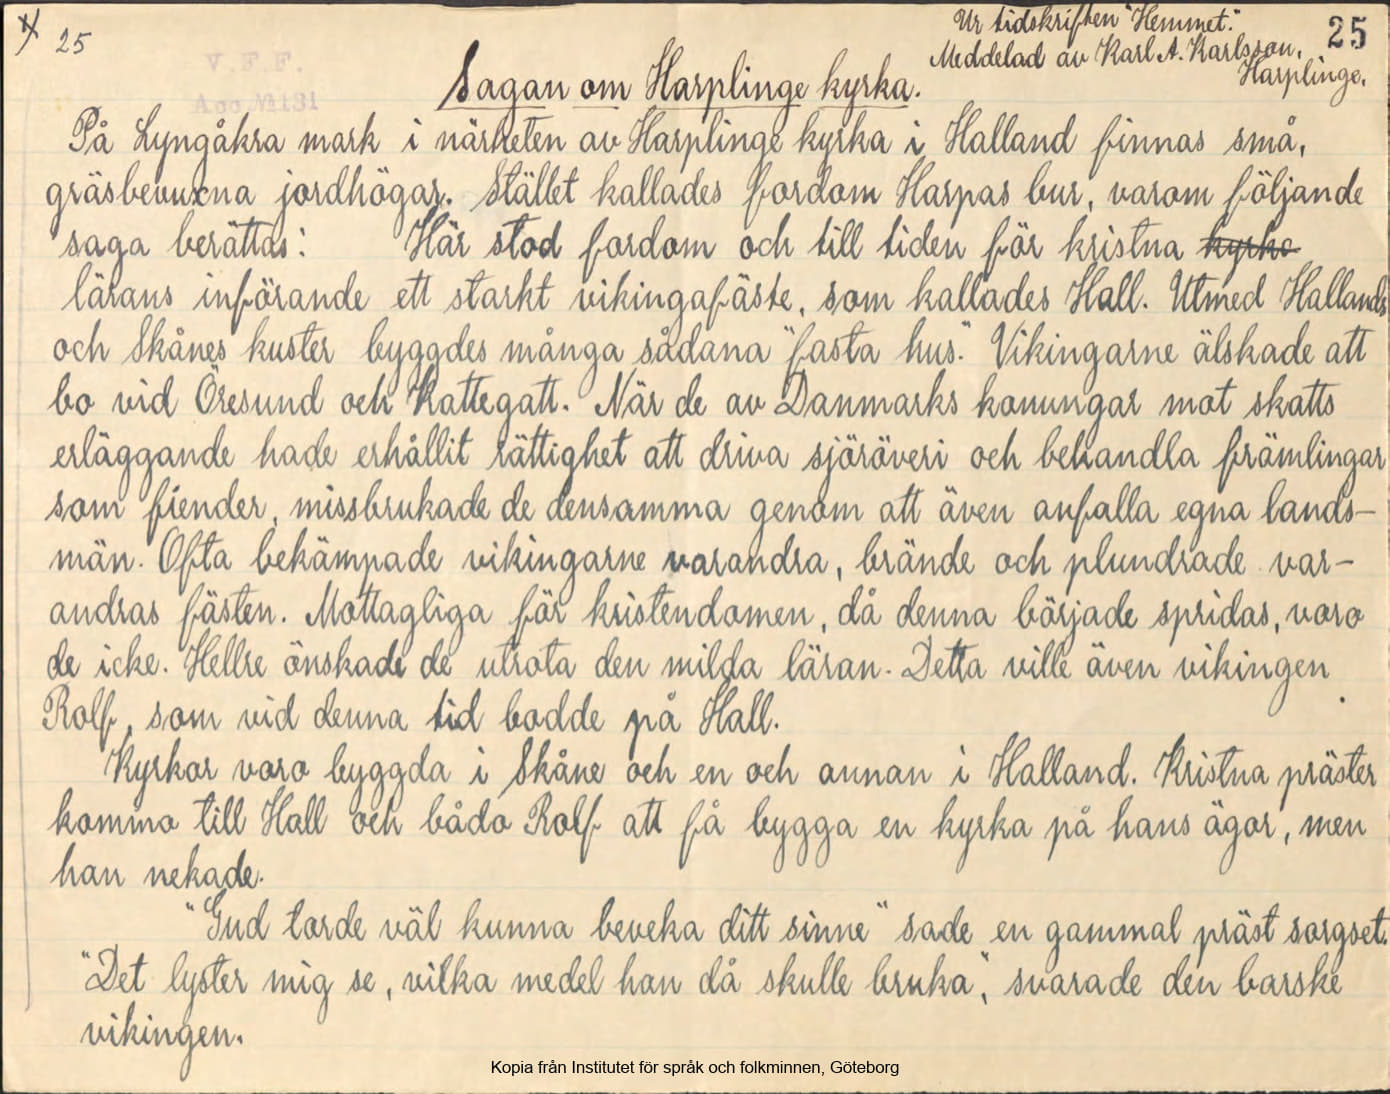 25
Ur tidskriften "Hemmet."
Meddelad av Karl A. Karlsson,
Harplinge.
25
V.F.F.
Acc. № 131
Sagan om Harplinge kyrka.
På Lyngåkra mark i närheten av Harplinge kyrka i Halland finnas små,
gräsbevuxna jordhögar. Stället kallades fordom Harpas bur, varom följande
saga berättas: Här stod fordom och till tiden för kristna kyrko
lärans införande ett starkt vikingafäste, som kallades Hall. Utmed Hallands
och Skånes kuster byggdes många sådana "fasta hus." Vikingarne älskade att
bo vid Öresund och Kattegatt. När de av Danmarks konungar mot skatts
erläggande hade erhållit rättighet att driva sjöröveri och behandla främlingar
som fiender, missbrukade de densamma genom att även anfalla egna lands-
män. Ofta bekämpade vikingarne varandra, brände och plundrade var-
andras fästen. Mottagliga för kristendomen, då denna började spridas, voro
de icke. Hellre önskade de utrota den milda läran. Detta ville även vikingen
Rolf, som vid denna tid bodde på Hall.
Kyrkor voro byggda i Skåne och en och annan i Halland. Kristna präster
kommo till Hall och bådo Rolf att få bygga en kyrka på hans ägor, men
han nekade.
"Gud torde väl kunna beveka ditt sinne" sade en gammal präst sorgset.
"Det lyster mig se, vilka medel han då skulle bruka", svarade den barske
vikingen.
Kopia från Institutet för språk och folkminnen, Göteborg